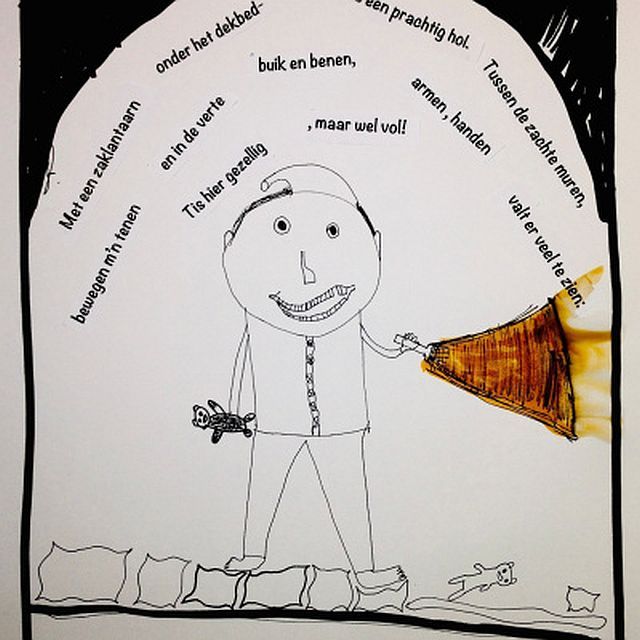 Met een zaklantaarn
onder het dekbed-
een prachtig hol.
Tussen de zachte muren,
valt er veel te zien:
armen , handen
buik en benen,
en in de verte
bewegen m'n tenen
Tis hier gezellig
, maar wel vol!